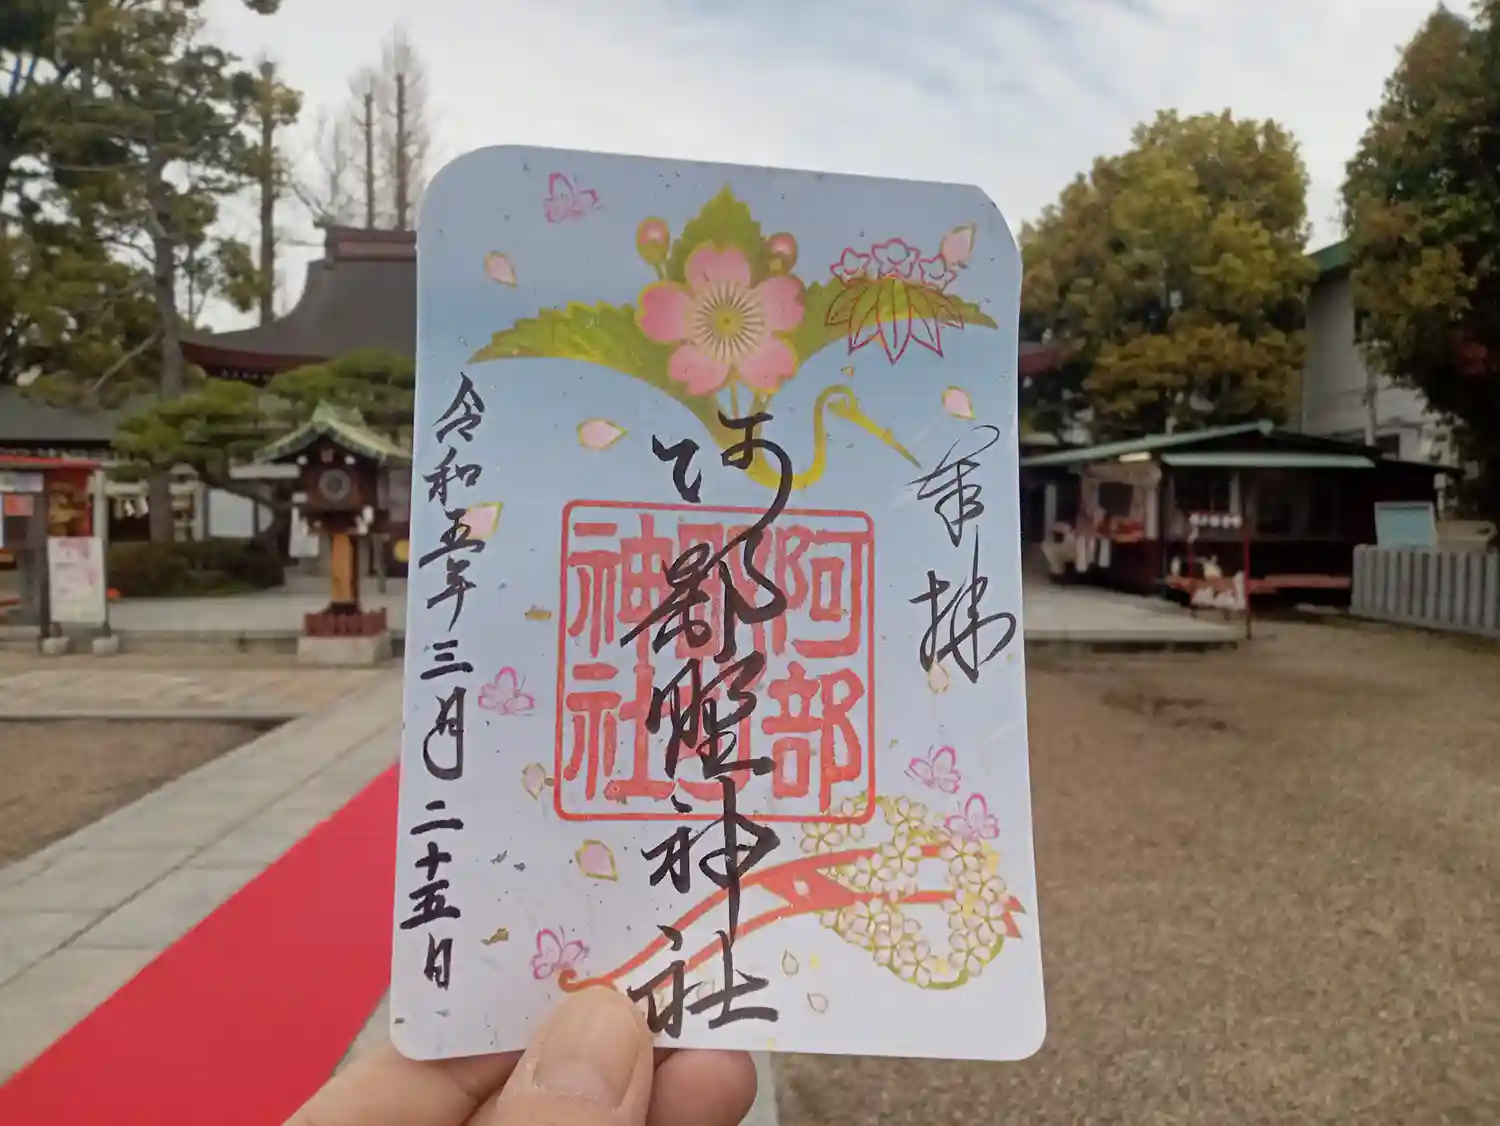 奉拝
阿部野神社
阿部
野
神社
令和五年三月二十五日